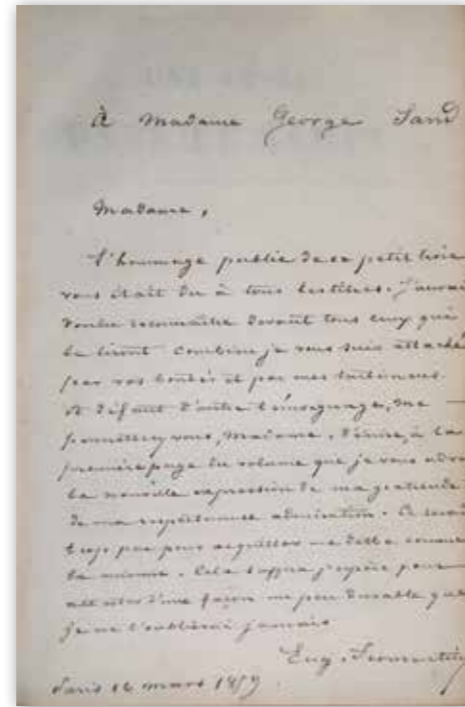 À Madame George Sand
Madame,
L'hommage public de ce petit livre
vous était du à tous les titres. J'aurai
voulu reconnaître devant tous ceux qui
le liront combien je vous suis attaché
par vos bontés et par mes
A défaut d'autre témoignage, me
permettez vous, Madame, d'écrire, à la
première page du volume que je vous adre
la nouvelle expression de ma gratitude
de ma respectueuse admiration. Ce serai
trop peu pour acquitter une dette comme
la mienne. Cela suffira j'espère pour
attester d'une façon un peu durable que
je ne l'oublierai jamais
Eug. Fromentin
Paris 16 mars 1859.